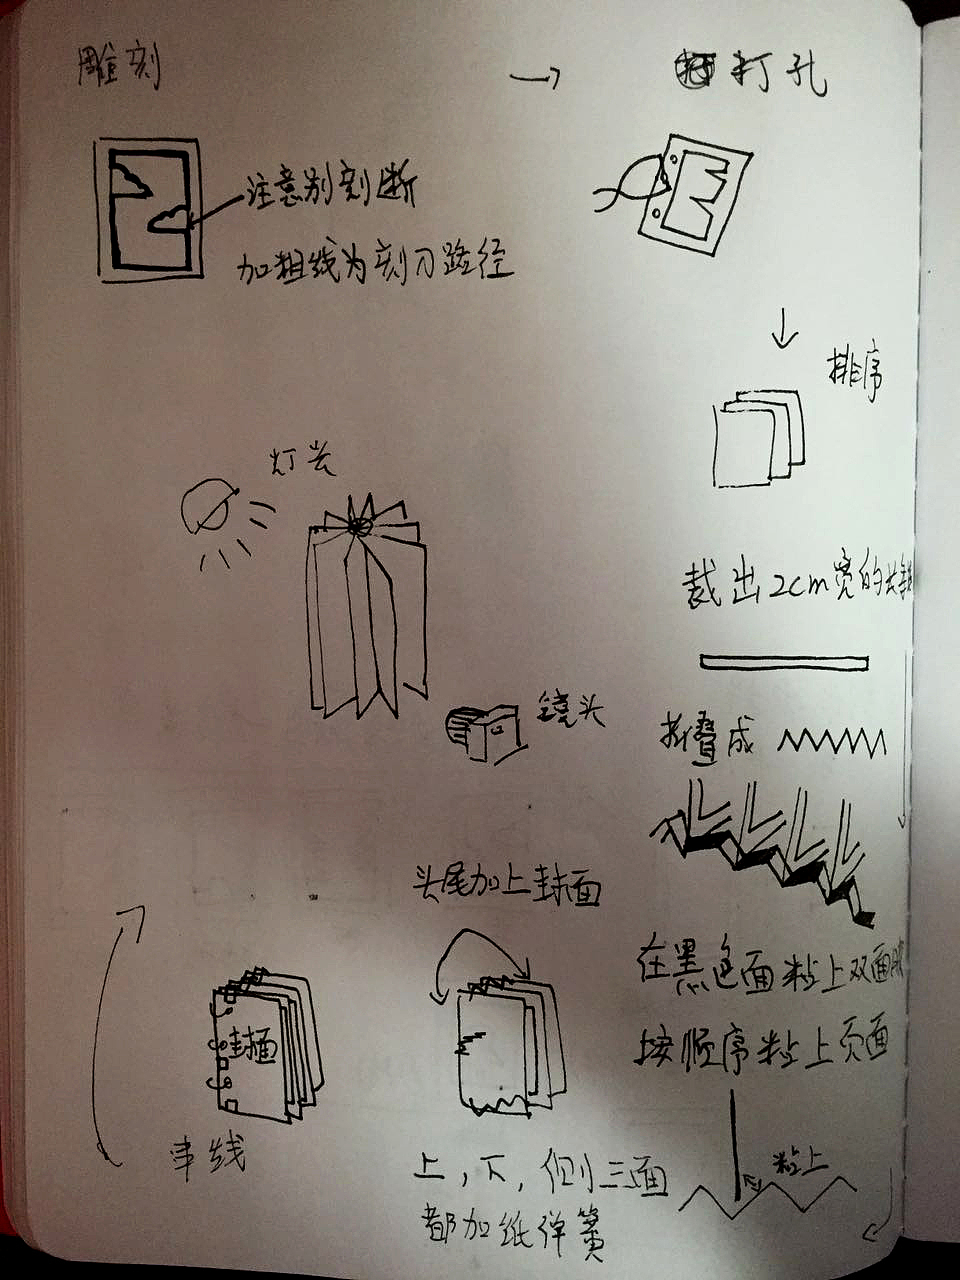 雕刻
打孔
注意别刻断
加粗线为刻刀路径
排序
灯
裁出2cm宽的长
折叠成
镜头
头尾加上封面
在黑色面粘上双面胶
按顺序粘上页面
粘上
封面
串线
上，下，侧三面
都加纸弹簧